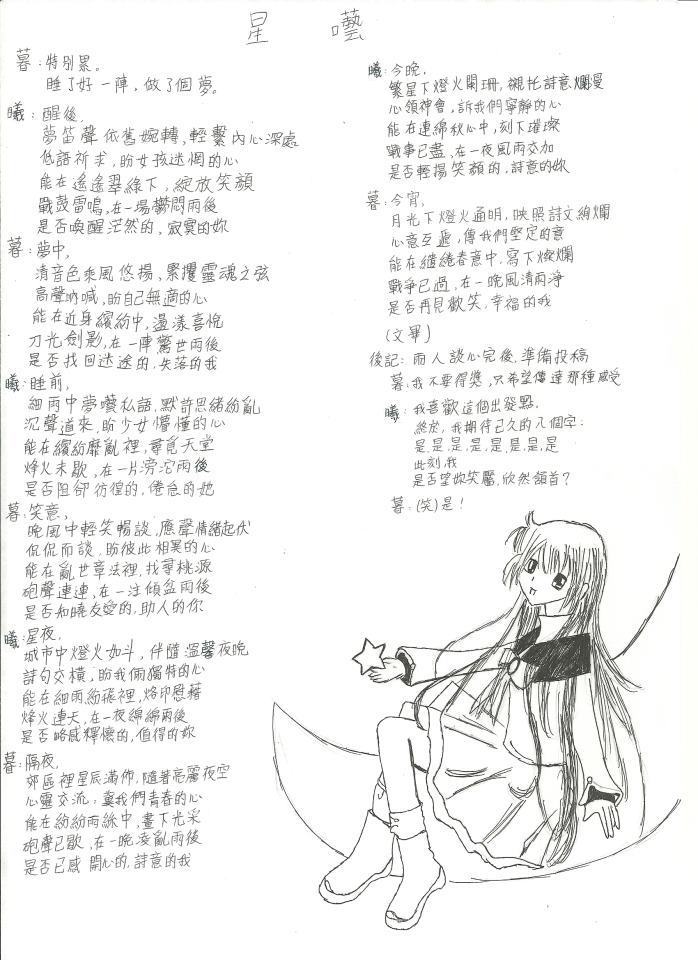 星 囈
暮：特別累。
睡了好一陣，做了個夢。
曦：醒後，
夢笛聲依舊婉轉，輕繫內心深處
低語祈求，盼女孩迷惘的心
能在遙遙翠綠下，綻放笑顏
戰鼓雷鳴，在一場鬱悶雨後
是否喚醒茫然的，寂寞的妳
暮：夢中，
清音色乘風悠揚，緊攫靈魂之弦
高聲吶喊，盼自己無適的心
能在近身繽紛中，盪漾喜悅
刀光劍影，在一陣驚世雨後
是否找回迷途的，失落的我
曦：睡前，
細雨中夢囈私語，默許思緒紛亂
沉聲道來，盼少女懵懂的心
能在繽紛靡亂裡，尋覓天堂
烽火未歇，在一片滂沱雨後
是否阻卻彷徨的，倦怠的她
暮：笑意，
晚風中輕笑暢談，應聲情緒起伏
侃侃而談，盼彼此相異的心
能在亂世章法裡，找尋桃源
砲聲連連，在一注傾盆雨後
是否知曉友愛的，助人的你
曦：星夜，
城市中燈火如斗，伴隨溫馨夜晚
詩句交橫，盼我倆獨特的心
能在細雨紛飛裡，烙印慰藉
烽火連天，在一夜綿綿雨後
是否略感釋懷的，值得的妳
暮：隔夜，
郊區裡星辰滿佈，隨著亮麗夜空
心靈交流，冀我們青春的心
能在紛紛雨絲中，畫下光采
砲聲已歇，在一晚凌亂雨後
是否已感開心的，詩意的我
曦：今晚，
繁星下燈火闌珊，襯托詩意爛漫
心領神會，訴我們寧靜的心
能在連綿秋心中，刻下璀璨
戰事已盡，在一夜風雨交加
是否輕揚笑顏的，詩意的妳
暮：今宵，
月光下燈火通明，映照詩文絢爛
心意互遞，傳我們堅定的意
能在繾綣春意中，寫下燦爛
戰爭已過，在一晚風清雨淨
是否再見歡笑，幸福的我
(文畢)
後記：兩人談心完後，準備投稿
暮：我不要得獎，只希望傳達那種感受
曦：我喜歡這個出發點，
終於，我期待已久的八個字：
是，是，是，是，是，是，是，是
此刻，我
是否望妳笑靨，欣然頷首？
暮：(笑)是！